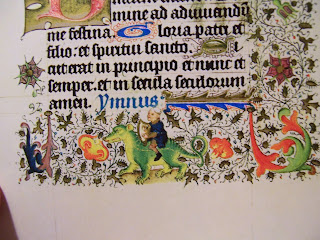 mine ad adiuvandum
me festina. Gloria patri et
filio: et spiritui sancto.
Sicut erat in principio et nunc et
semper. et in secula seculorum
amen. Ymnus.